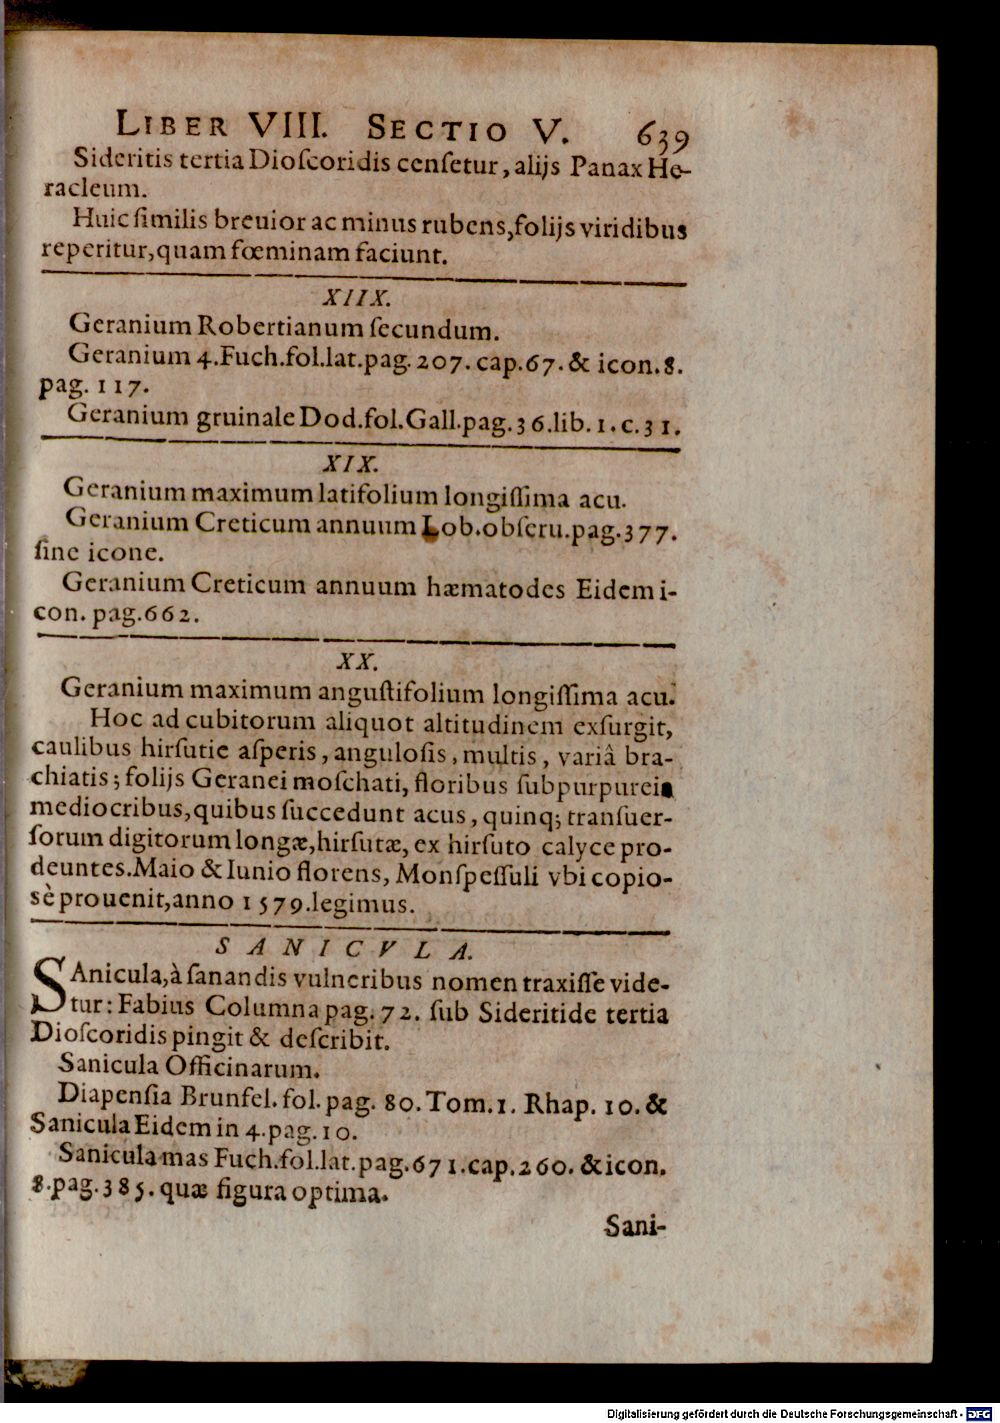 LIBER VIII. SECTIO V. 639
Sideritis tertia Dioſcoridis cenſetur, alijs Panax He-
racleum.
Huic ſimilis breuior ac minus rubens, folijs viridibus
reperitur, quam fœminam faciunt.
XIIX.
Geranium Robertianum ſecundum.
Geranium 4. Fuch. fol. lat. pag. 207. cap. 67. & icon. 8.
pag. 117.
Geranium gruinale Dod. fol. Gall. pag. 36. lib. 1. c. 31.
XIX.
Geranium maximum latifolium longiſſima acu.
Geranium Creticum annuum Lob. obſeru. pag. 377.
ſine icone.
Geranium Creticum annuum hæmatodes Eidem i-
con. pag. 662.
XX.
Geranium maximum anguſtifolium longiſſima acu.
Hoc ad cubitorum aliquot altitudinem exſurgit,
caulibus hirſutie aſperis, anguloſis, multis, variâ bra-
chiatis; folijs Geranei moſchati, floribus ſubpurpureis
mediocribus, quibus ſuccedunt acus, quinq; tranſuer-
ſorum digitorum longæ, hirſutæ, ex hirſuto calyce pro-
deuntes. Maio & Iunio florens, Monſpeſſuli vbi copio-
sè prouenit, anno 1579. legimus.
SANICVLA.
SAnicula, à ſanandis vulneribus nomen traxiſſe vide-
tur: Fabius Columna pag. 72. ſub Sideritide tertia
Dioſcoridis pingit & deſcribit.
Sanicula Officinarum.
Diapenſia Brunfel. fol. pag. 80. Tom. 1. Rhap. 10. &
Sanicula Eidem in 4. pag. 10.
Sanicula mas Fuch. fol. lat. pag. 671. cap. 260. & icon.
8. pag. 385. quæ figura optima.
Sani-
Digitalisierung gefördert durch die Deutsche Forschungsgemeinschaft - DFG